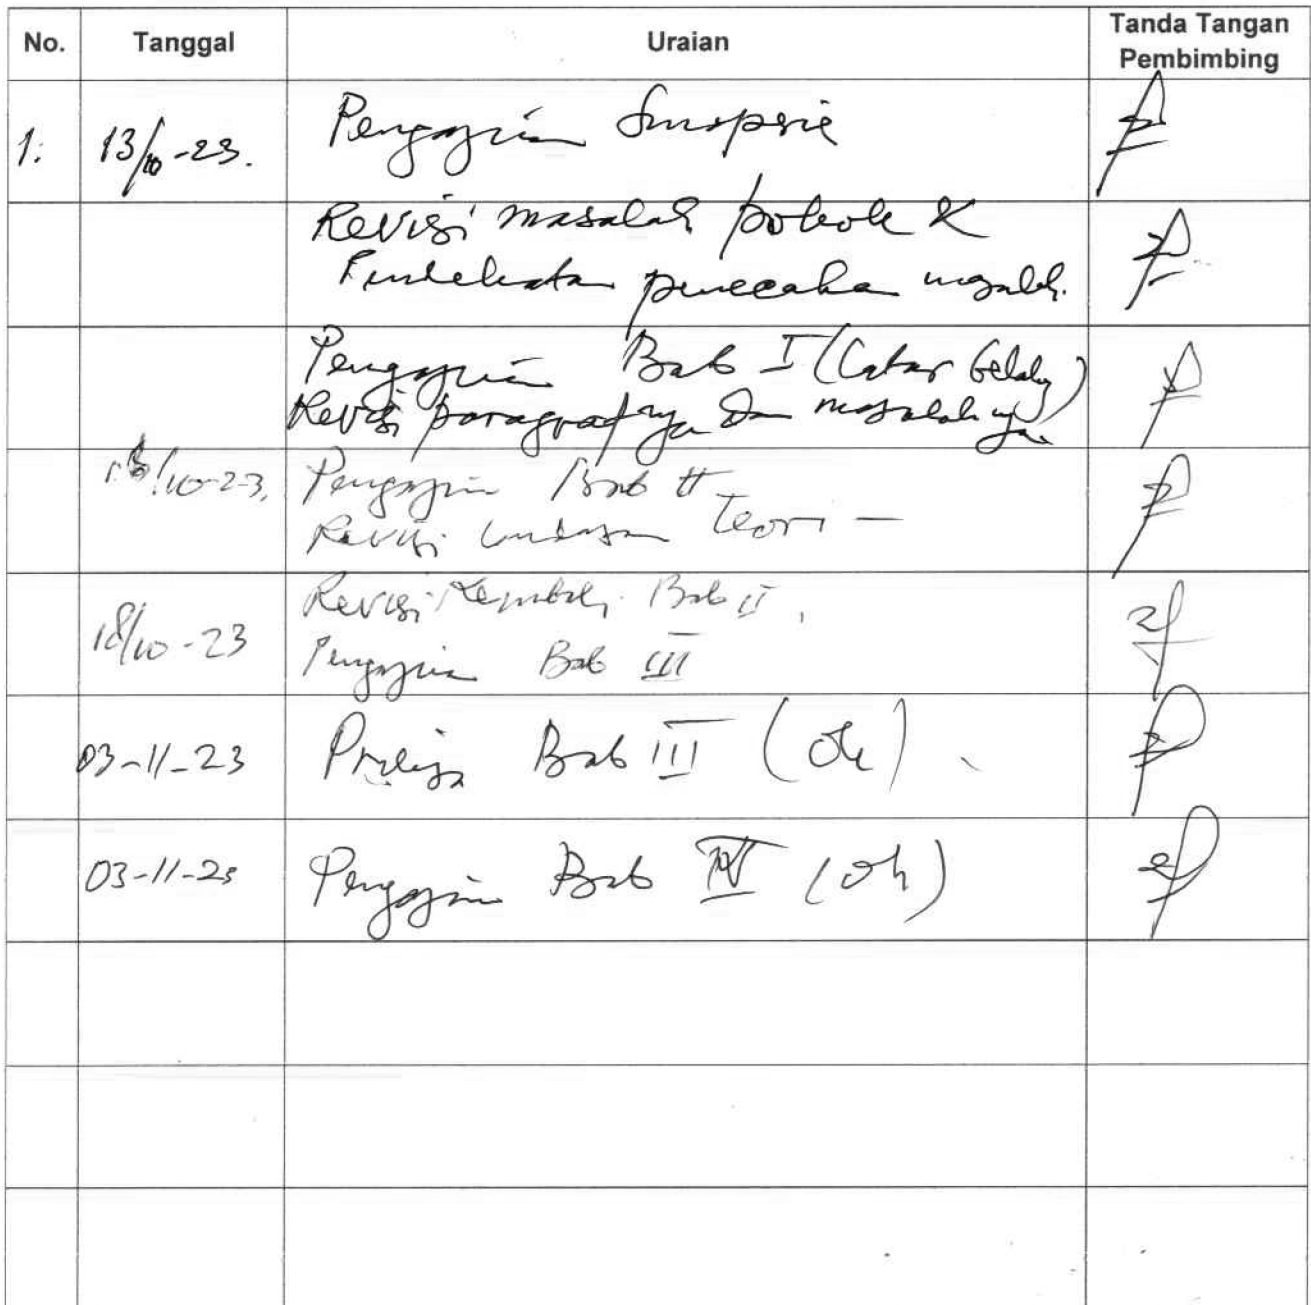 No. Tanggal Uraian Tanda Tangan Pembimbing
1. 13/10-23. Pengajuan Sinopsis
Revisi masalah pokok &
Pendekatan pemecahan masalah.
Pengajuan Bab I (Latar belakang)
Revisi paragrafnya dan masalahnya
10-23. Pengajuan Bab II
Revisi Landasan Teori -
18/10-23 Revisi Kembali Bab II,
Pengajuan Bab III
03-11-23 Bab III (Ok)
03-11-23 Pengajuan Bab IV (Ok)